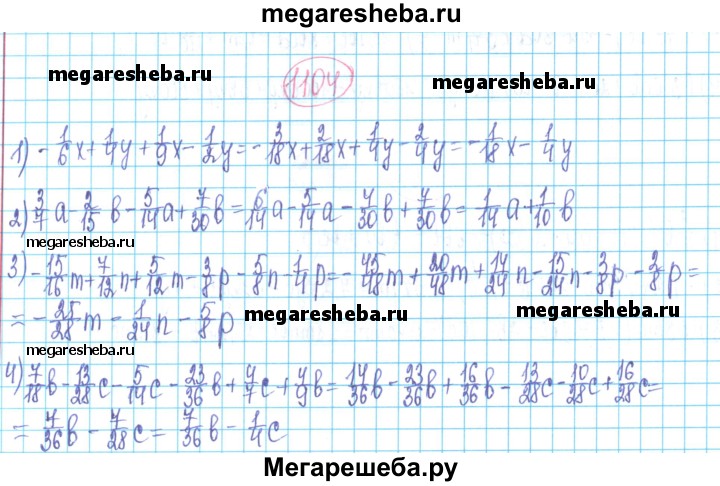 megaresheba.ru
megaresheba.ru
megaresheba.ru
1104
1) -1/6x+1/4y+1/9x-1/2y=-3/18x+2/18x+1/4y-2/4y=-1/18x-1/4y
2) 3/7a-2/15в-5/14a+7/30в=6/14a-5/14a-4/30в+7/30в=1/14a+1/10в
megaresheba.ru
3) -15/16m+7/12n+5/12m-3/8p-5/8n-1/4p=-45/48m+20/48m+14/24n-15/24n-3/8p-2/8p=
=-25/28m-1/24n-5/8p
megaresheba.ru
megaresheba.ru
megaresheba.ru
4) 7/18в-13/28c-5/14c-23/36в+4/7c+4/9в=14/36в-23/36в+16/36в-13/28c-10/28c+16/28c=
=7/36в-7/28c=7/36в-1/4c
Мегарешеба.ру